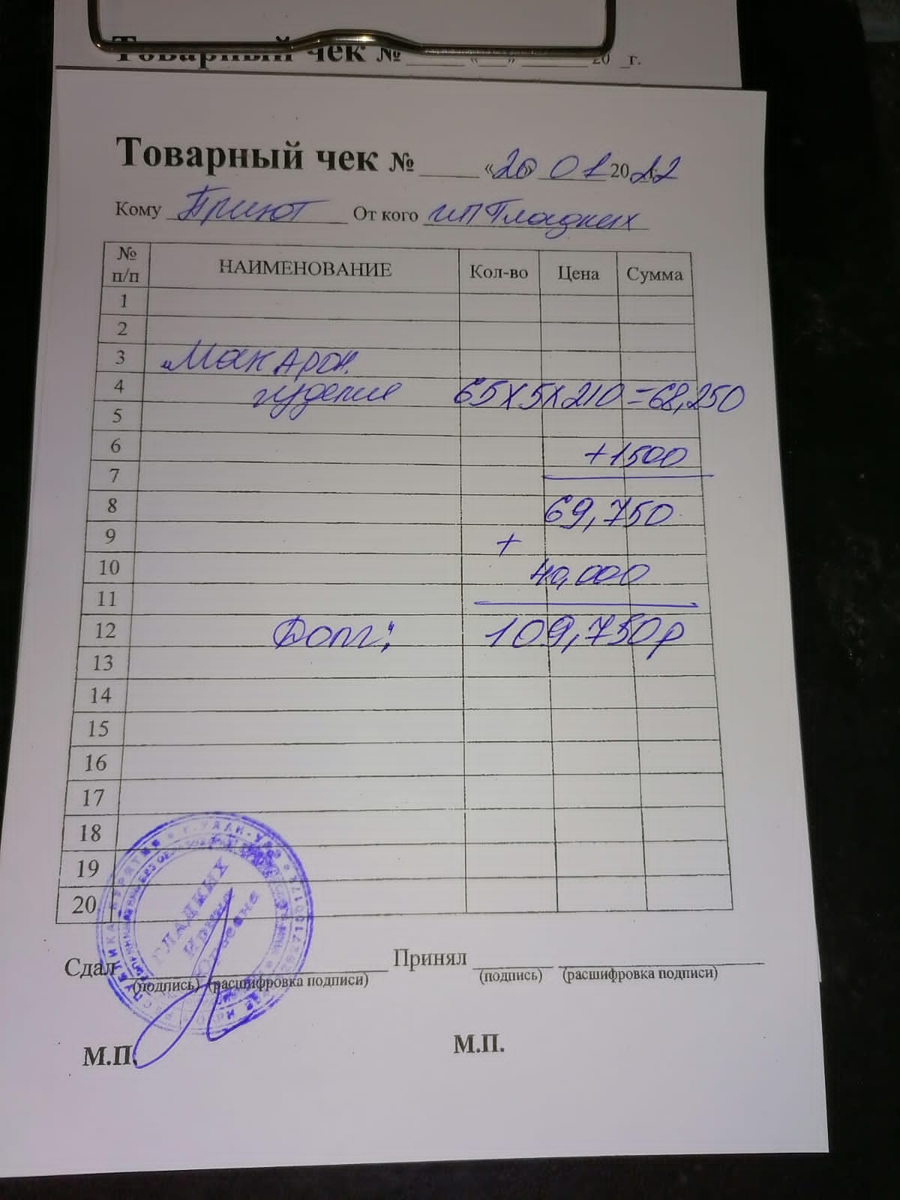 Товарный чек № ______ «___» _______ 20 _г.
Товарный чек № _____ «26» 01 2022
Кому Приют От кого ИП Гладких
№ п/п НАИМЕНОВАНИЕ Кол-во Цена Сумма
1
2
3 "Макарон.
4 изделие 65х5х210=68,250
5
6 +1500
7
8 69,750
9 +
10 40,000
11
12 Долг; 109,750р
13
14
15
16
17
18
19
20
ГЛАДКИХ
Ирина
Сдал Принял
(подпись) (расшифровка подписи) (подпись) (расшифровка подписи)
М.П. М.П.